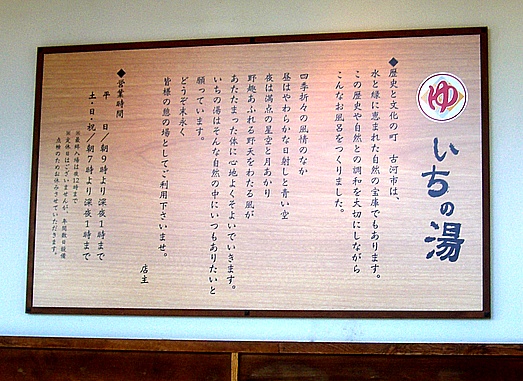 ゆ
いちの湯
◆歴史と文化の町　古河市は、
水と緑に恵まれた自然の宝庫でもあります。
この歴史や自然との調和を大切にしながら
こんなお風呂をつくりました。
四季折々の風情のなか
昼はやわらかな日射しと青い空
夜は満点の星空と月あかり
野趣あふれる野天をわたる風が
あたたまった体に心地よくそよいでいきます。
いちの湯はそんな自然の中にいつもありたいと
願っています。
どうぞ末永く
皆様の憩の場としてご利用下さいませ。
店主
◆営業時間
平　日／朝9時より深夜1時まで
土・日・祝／朝7時より深夜1時まで
※最終入場は夜12時まで
※定休日はございませんが、年間数日設備
点検のためお休みさせていただきます。